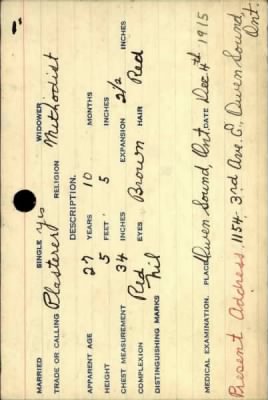 MARRIED SINGLE yes WIDOWER
TRADE OR CALLING Plasterer RELIGION Methodist
DESCRIPTION.
APPARENT AGE 27 YEARS 10 MONTHS
HEIGHT 5 FEET 5 INCHES
CHEST MEASUREMENT 34 INCHES EXPANSION 2½ INCHES
COMPLEXION Red EYES Brown HAIR Red
DISTINGUISHING MARKS Nil
MEDICAL EXAMINATION. PLACE Owen Sound, Ont. DATE Dec 4th 1915
Present Address 1154-3rd Ave. E., Owen Sound,
Ont.